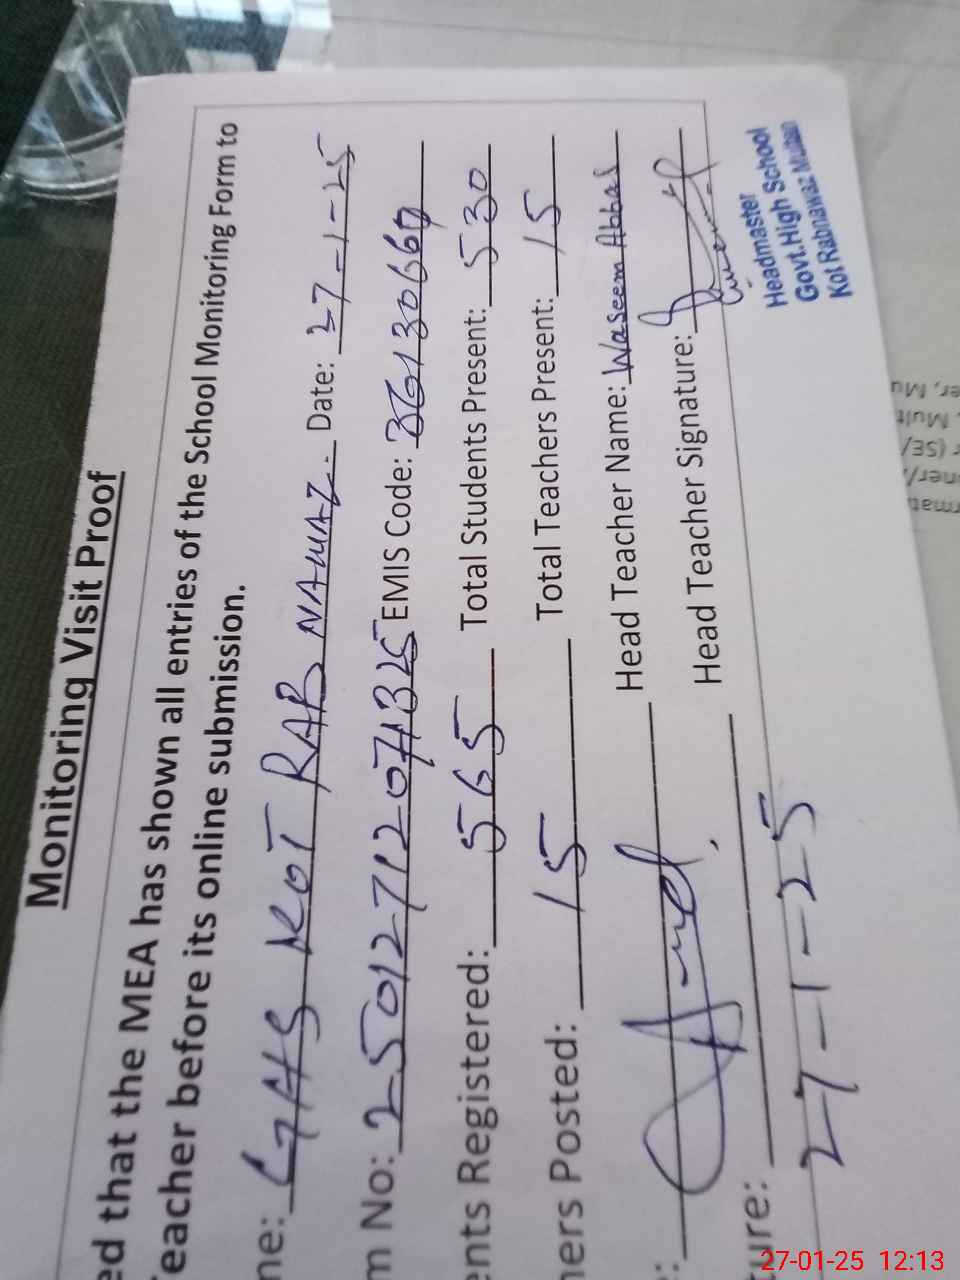 Monitoring Visit Proof
ed that the MEA has shown all entries of the School Monitoring Form to
Teacher before its online submission.
ne: GHS KOT RAB NAWAZ. Date: 27-1-25
m No: 25012712071325 EMIS Code: 36130660
ents Registered: 565 Total Students Present: 530
hers Posted: 15 Total Teachers Present: 15
Head Teacher Name: Waseem Abbas
ure: Head Teacher Signature:
27-1-25
Headmaster
Govt. High School
Kot Rabnawaz Multan
27-01-25 12:13